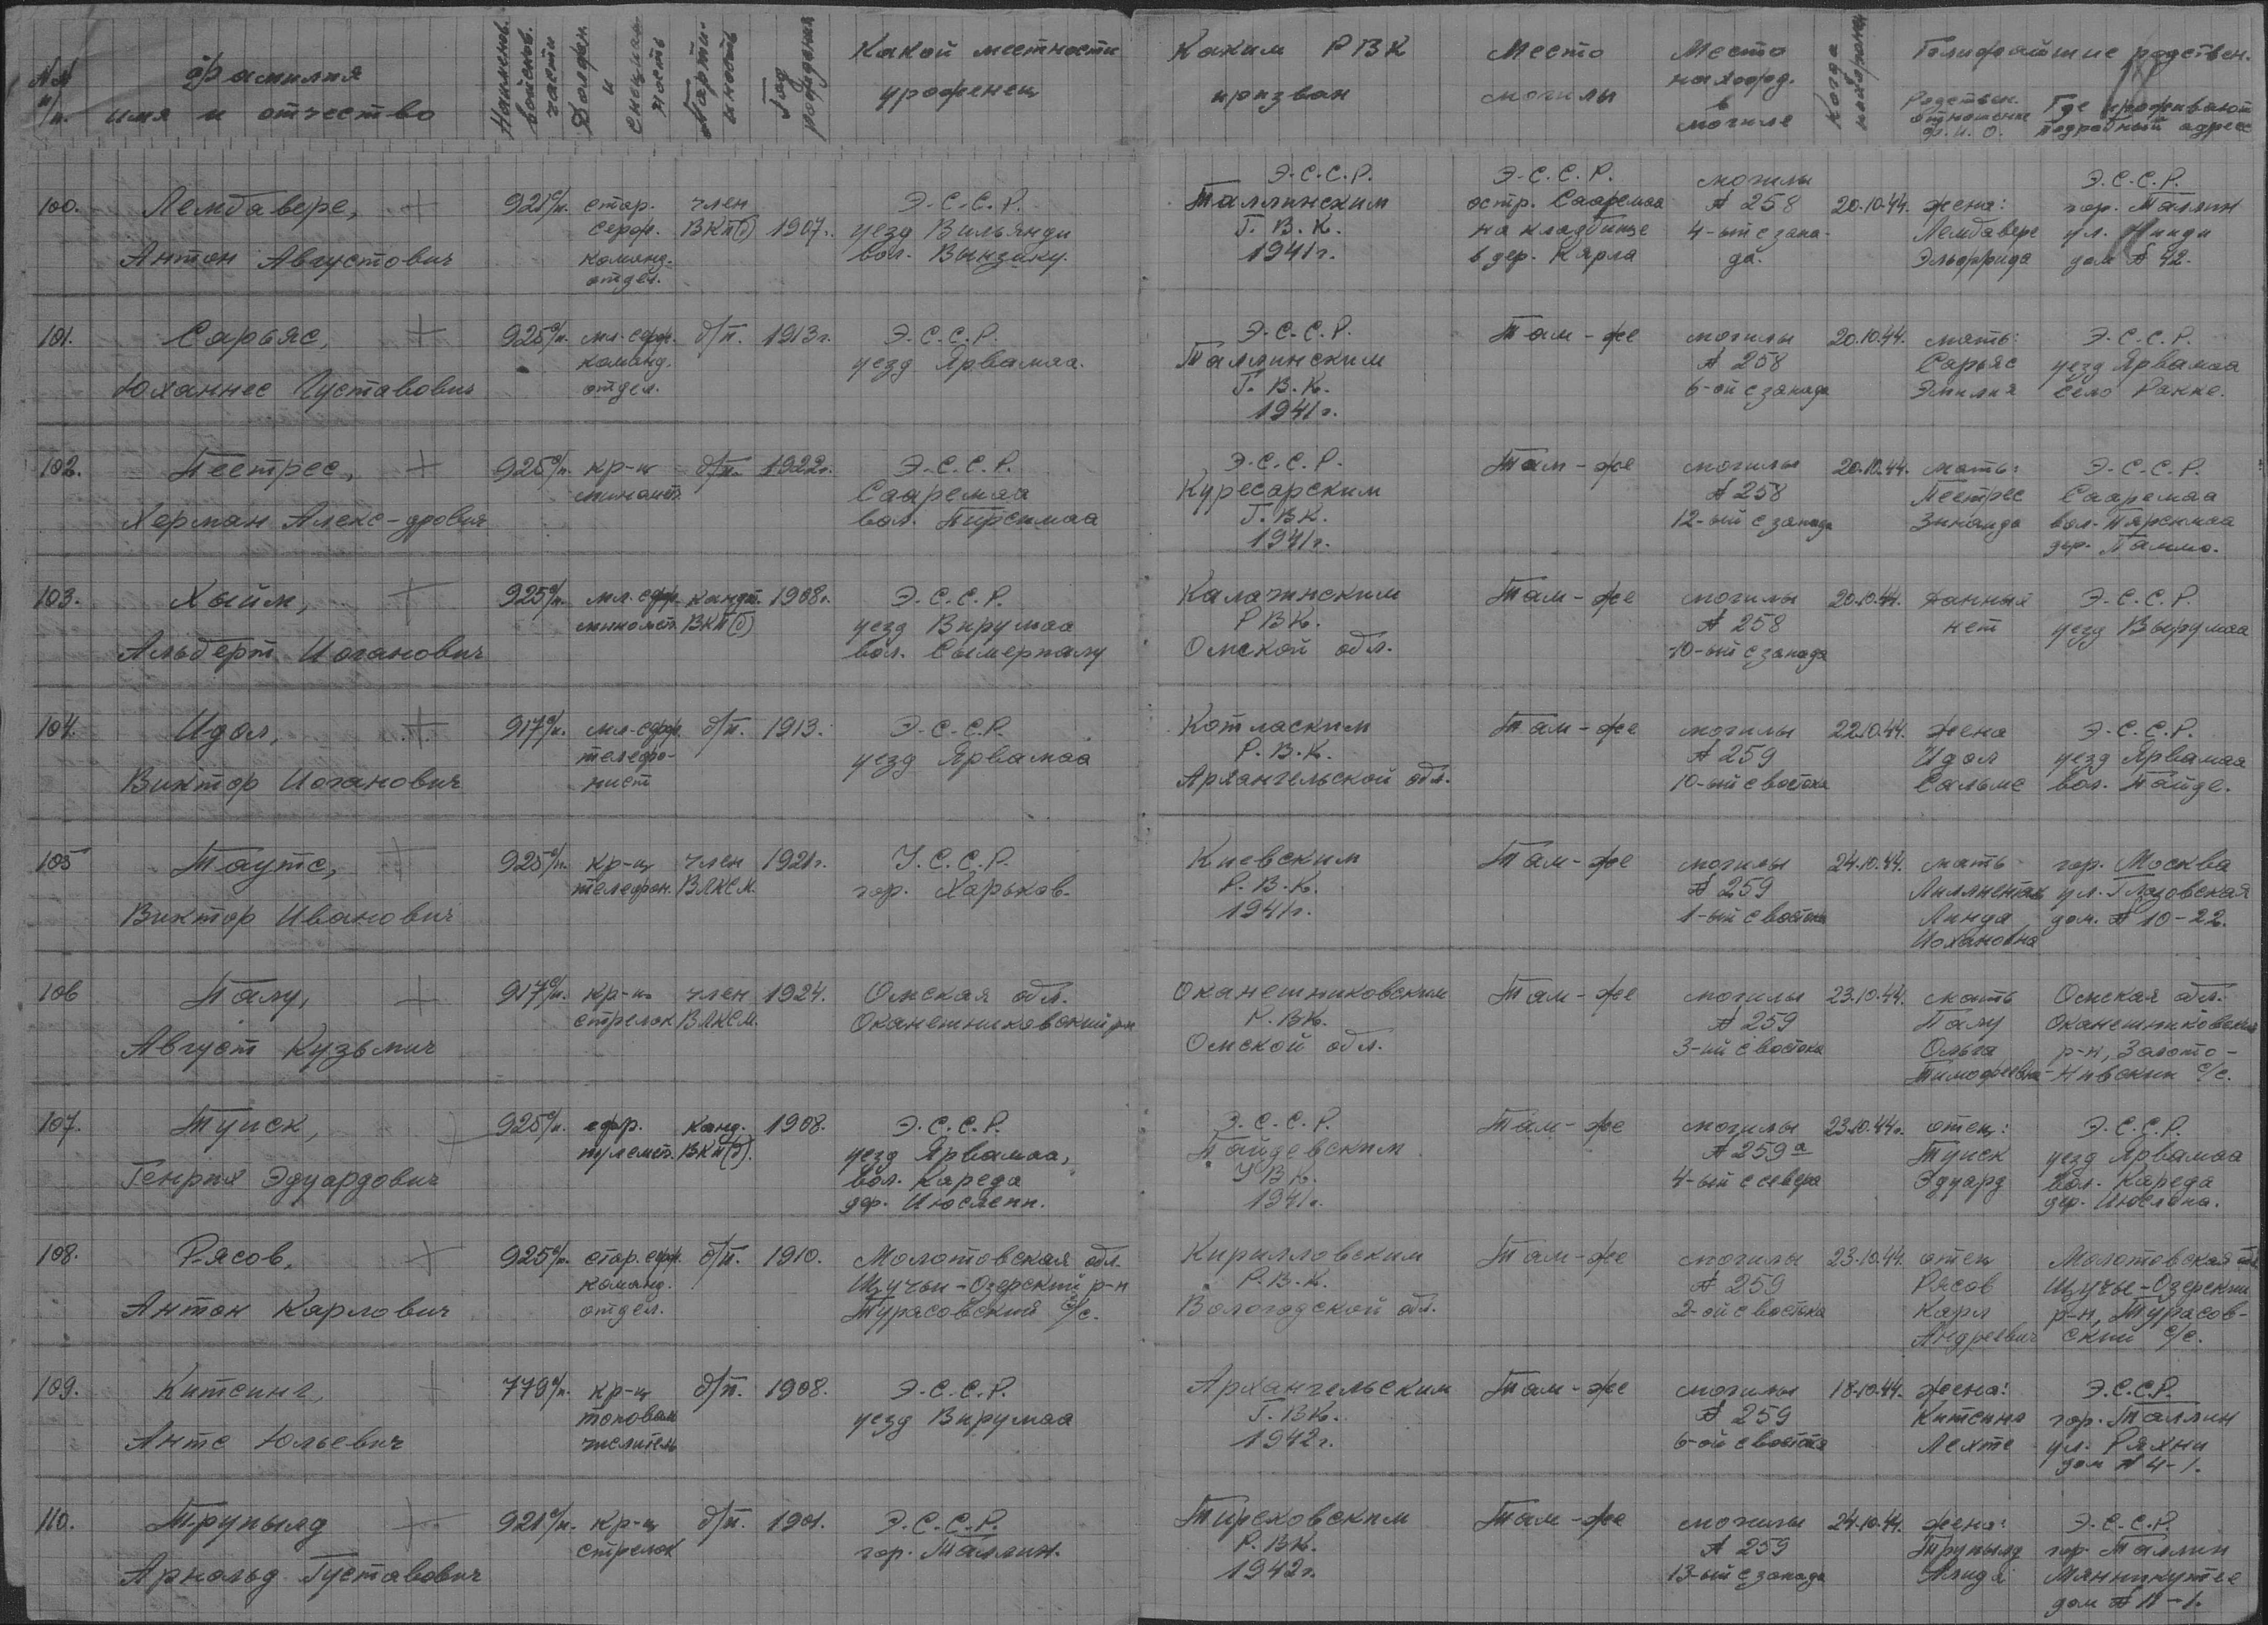 №№ п/п. Фамилия имя и отчество
Наименов. войсков. части
Должн. и специальность
Партийность
Год рождения
Какой местности уроженец
Каким РВК призван
Место могилы
Место наход. в могиле
Когда похоронен
Ближайшие родствен.
Родствен. отношение Ф.И.О.
Где проживают подробный адрес
100. Лембавере, + 921 с/п. стар. член Э.С.С.Р.
серж. ВКП(б) 1907г. уезд Вильянди
Антон Августович команд. вол. Вынзику.
отдел.
Э.С.С.Р. Э.С.С.Р. могилы Э.С.С.Р.
Таллинским остр. Сааремаа № 258 20.10.44. жена: гор. Таллин
Г.В.К. на кладбище 4-ый с запа- Лембавере ул.
1941г. в дер. Кярла да. Эльфрида дом № 42.
101. Сарьяс, + 925 с/п. мл. серж. б/п. 1913г. Э.С.С.Р.
команд. уезд Ярвамаа.
Юханнес Густавович отдел.
Э.С.С.Р. Там-же могилы 20.10.44. мать: Э.С.С.Р.
Таллинским № 258 Сарьяс уезд Ярвамаа
Г.В.К. 6-ой с запада Эмилия село Ракке.
1941г.
102. Пеетрес, + 925 с/п. кр-ц б/п. 1922г. Э.С.С.Р.
миномет. Сааремаа
Херман Алекс-дрович вол. Пирсимаа
Э.С.С.Р. Там-же могилы 20.10.44. мать: Э.С.С.Р.
Куресарским № 258 Пеетрес Сааремаа
Г.ВК. 12-ый с запада Зинаида вол. Пярсимаа
1941г. дер. Паммо.
103. Хыйм, + 925 с/п. мл. серж. кандт. 1908г. Э.С.С.Р.
миномет. ВКП(б) уезд Вирумаа
Альберт Иоганович вол. Сымерпалу
Калачинским Там-же могилы 20.10.44. данный Э.С.С.Р.
РВК. № 258 нет уезд Вырумаа
Омской обл. 10-ый с запада
104. Идол, + 917 с/п. мл. серж. б/п. 1913. Э.С.С.Р.
телефо- уезд Ярвамаа
Виктор Иоганович нист
Котласким Там-же могилы 22.10.44. жена Э.С.С.Р.
Р.В.К. № 259 Идол уезд Ярвамаа
Архангельской обл. 10-ый с востока Сальме вол. Пайде.
105 Таутс, + 925 с/п. кр-ц член 1921г. У.С.С.Р.
телефон. ВЛКСМ. гор. Харьков.
Виктор Иванович
Киевским Там-же могилы 24.10.44. мать гор. Москва
Р.В.К. № 259 ул. Глазовская
1941г. 1-ый с востока Линда дом. № 10-22.
Иохановна
106 Палу, + 917 с/п. кр-ц член 1924. Омская обл.
стрелок ВЛКСМ. Оканешниковский р-н
Август Кузьмич
Оканешниковским Там-же могилы 23.10.44. мать Омская обл.
Р.ВК. № 259 Палу Оканешниковский
Омской обл. 3-ий с востока Ольга р-н, Золото-
Тимофеевна Нивский с/с.
107. Туиск, + 925 с/п. ефр. канд. 1908. Э.С.С.Р.
пулемет. ВКП(б). уезд Ярвамаа,
Генрих Эдуардович вол. Кареда
дер.
Э.С.С.Р. Там-же могилы 23.10.44г. отец: Э.С.С.Р.
Пайдевским № 259а Туиск уезд Ярвамаа
УВК. 4-ый с севера Эдуард вол. Кареда
1941г. дер.
108. Рясов, + 925 с/п. стар. серж. б/п. 1910. Молотовская обл.
команд. Щучьи-Озерский р-н
Антон Карлович отдел. Турасовский с/с.
Кирилловским Там-же могилы 23.10.44. отец Молотовская обл
Р.В.К. № 259 Рясов Щучье-Озерский
Вологодской обл. 2-ой с востока Карл р-н, Турасов-
Андреевич ский с/с.
109. Китсинг, + 779 с/п. кр-ц б/п. 1908. Э.С.С.Р.
топовы уезд Вирумаа
Антс Юльевич числитель
Архангельским Там-же могилы 18.10.44. жена: Э.С.С.Р.
Г.ВК. № 259 Китсинг гор. Таллин
1942г. 6-ой с востока Лехте ул. Ряхни
дом № 4-1.
110. Трупыльд + 921 с/п. кр-ц б/п. 1901. Э.С.С.Р.
стрелок гор. Таллин.
Арнольд Густавович
Там-же могилы 24.10.44. жена: Э.С.С.Р.
Р.ВК. № 259 Трупыльд гор. Таллин
1942г. 13-ый с запада Алида
дом № 11-1.